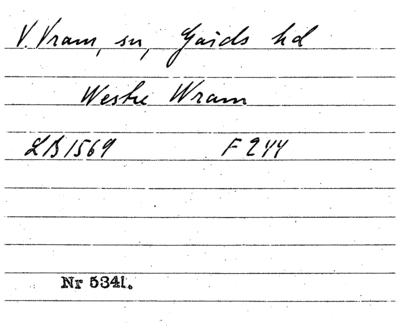 V. Vram, sn, Gärds hd
Westre Wram
LB 1569 F 244
Nr 5341.